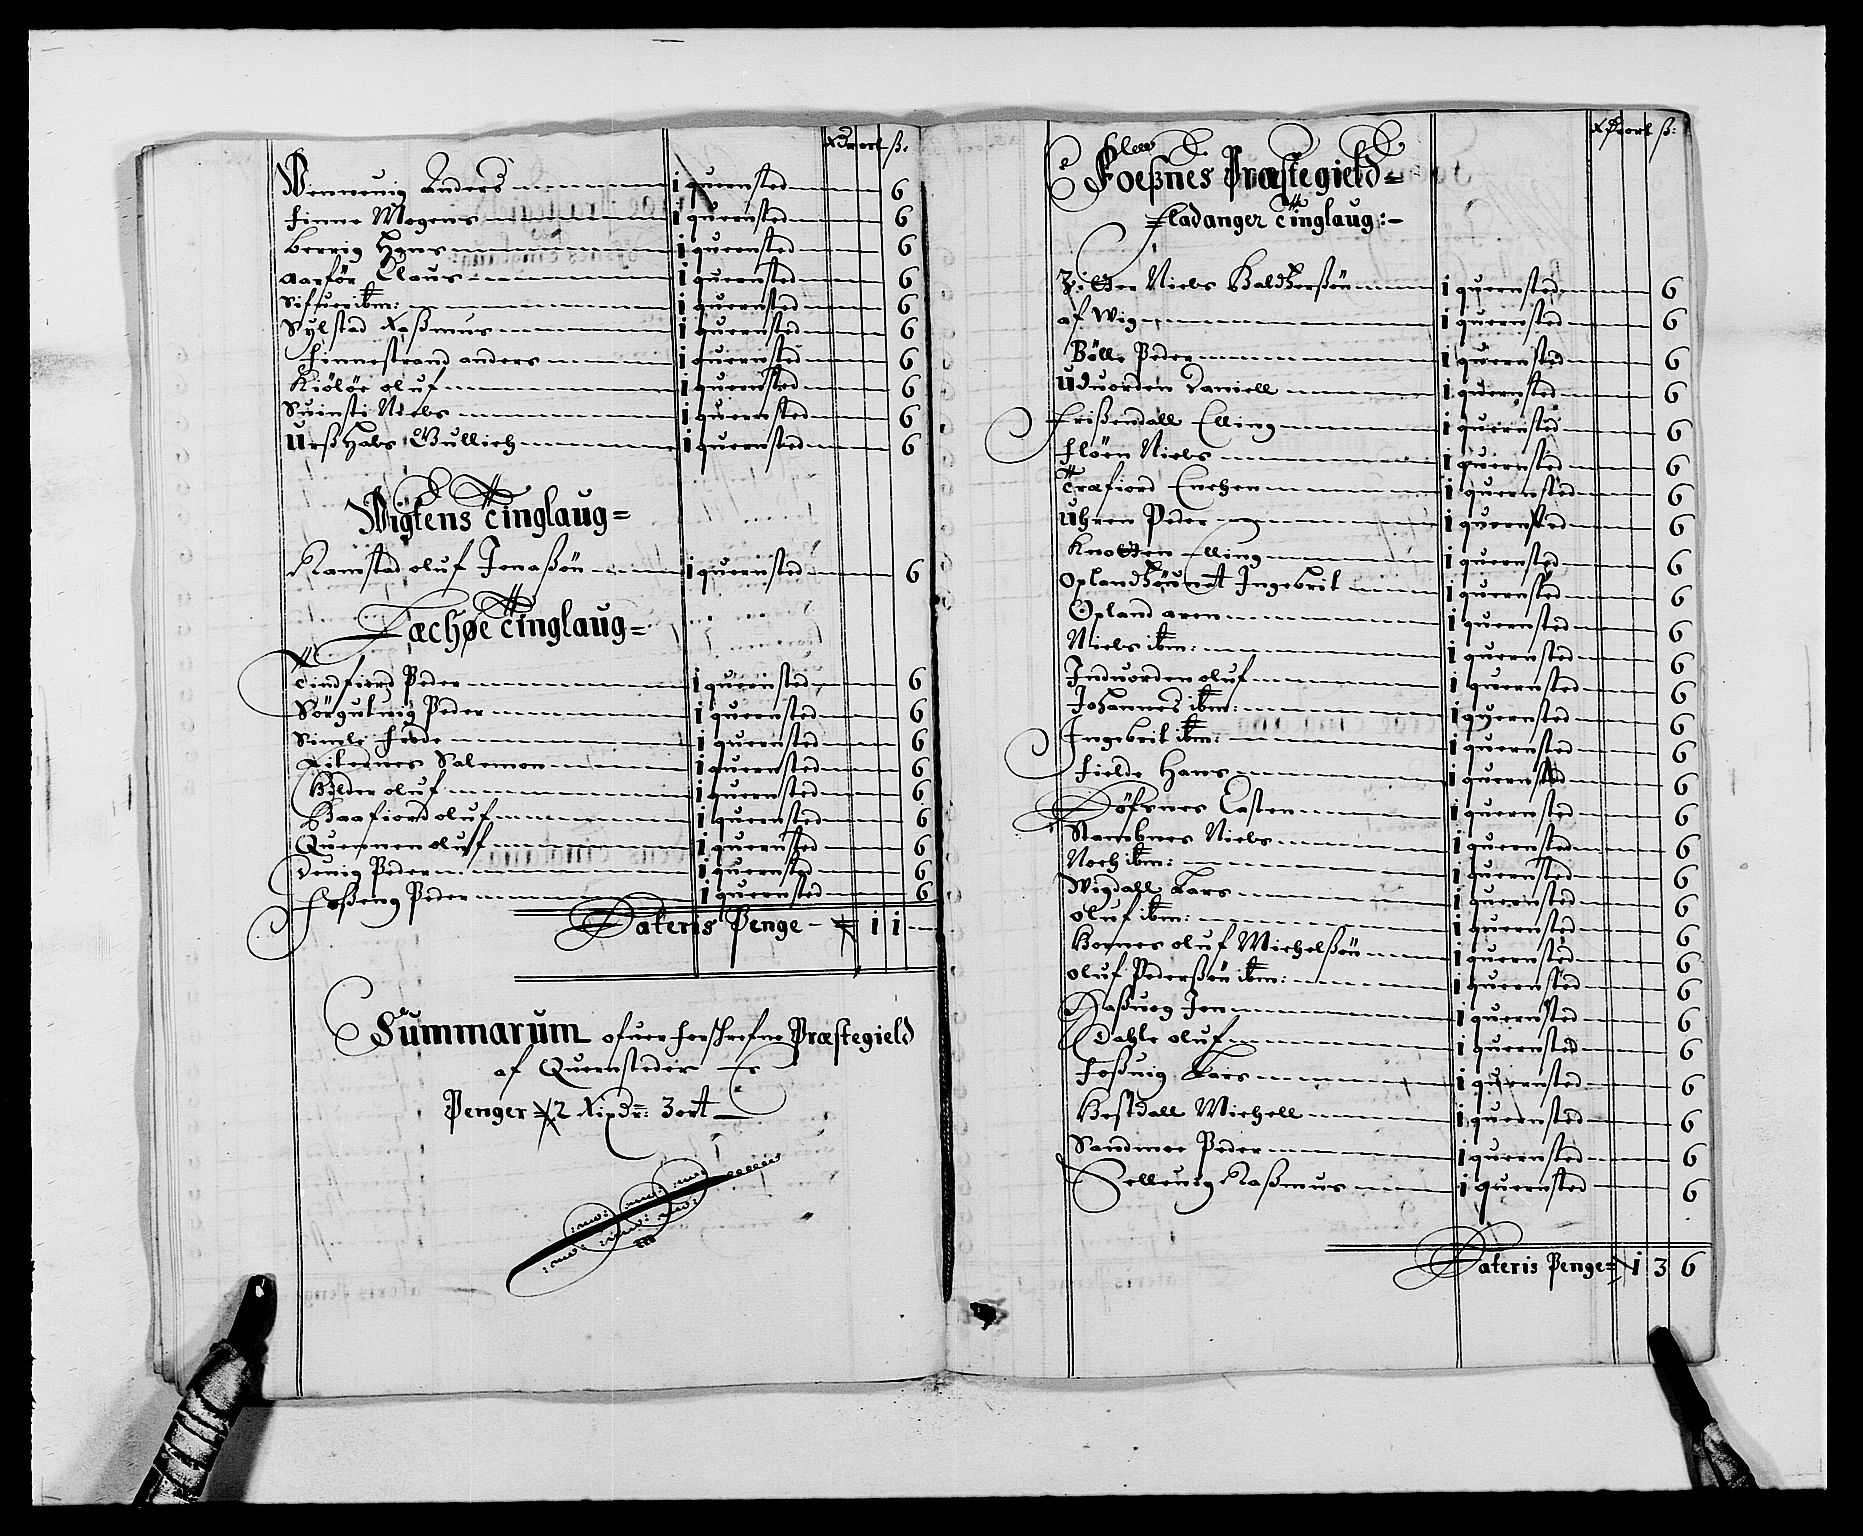 Rdr ort ß:
Wenneuig Anders i quernsted 6
Finne Mogens i quernsted 6
Berrig Hans i quernsted 6
Aarför Claus i quernsted 6
Sifuer ibm: i quernsted 6
Sylstad Raßmus i quernsted 6
Finnestrand anders i quernsted 6
Kiölöe oluf i quernsted 6
Suinsti Niels i quernsted 6
Urßhals Gullich i quernsted 6
Wigtens Tinglaug=
Ramstad oluf Jonaßön i quernsted 6
Læchøe Tinglaug=
Tindfiord Peder i quernsted 6
Sörgutuig Peder i quernsted 6
Simle i quernsted 6
Salemon i quernsted 6
Bilder oluf i quernsted 6
Baafiord oluf i quernsted 6
Quernen oluf i quernsted 6
Deuig Peder i quernsted 6
Foßeng Peder i quernsted 6
Lateris Penge - i i -
Summarum ofuer forskrefne Præstegield
af Quernsteder Er
Penger 2 Rixdr: 3 ort
Rdr ort ß:
Foeßnes Præstegield=
Fladanger Tinglaug:-
Zitter Niels Baldtzerßön i quernsted 6
af Wig i quernsted 6
Bölle Peder i quernsted 6
Uduorden Daniell i quernsted 6
Frißendall Elling i quernsted 6
Flöen Niels i quernsted 6
Træfiord Enchen i quernsted 6
Uhren Peder i quernsted 6
Knotten Elling i quernsted 6
Ingebrit i quernsted 6
Opland aren i quernsted 6
Niels ibm: i quernsted 6
Induorden oluf i quernsted 6
Johannes ibm: i quernsted 6
Ingebrit ibm: i quernsted 6
Fielde Hans i quernsted 6
Löfsnes Casten i quernsted 6
Stamsnes Niels i quernsted 6
Noch ibm: i quernsted 6
Wigdall Lars i quernsted 6
oluf ibm: i quernsted 6
Hornes oluf Michelßön i quernsted 6
oluf Pederßön ibm: i quernsted 6
Laßuog Jon i quernsted 6
Dahle oluf i quernsted 6
Foßuig Lars i quernsted 6
Bestdall Michell i quernsted 6
Sandmoe Peder i quernsted 6
Selleuig Raßmus i quernsted 6
Lateris Penge= i 3 6